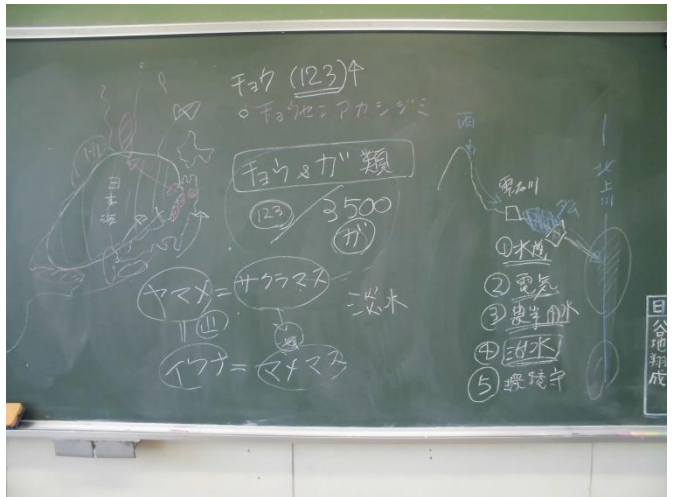 チョウ (123)
○ チョウセンアカシジミ
チョウ & ガ 類
123 / 3500
ガ
ヤマメ = サクラマス
山
淡水
イワナ = アメマス
日本海
雨
雫石川
ダム
北上川
① 水道
② 電気
③ 農業用水
④ 治水
⑤ 環境守
日
谷地翔成